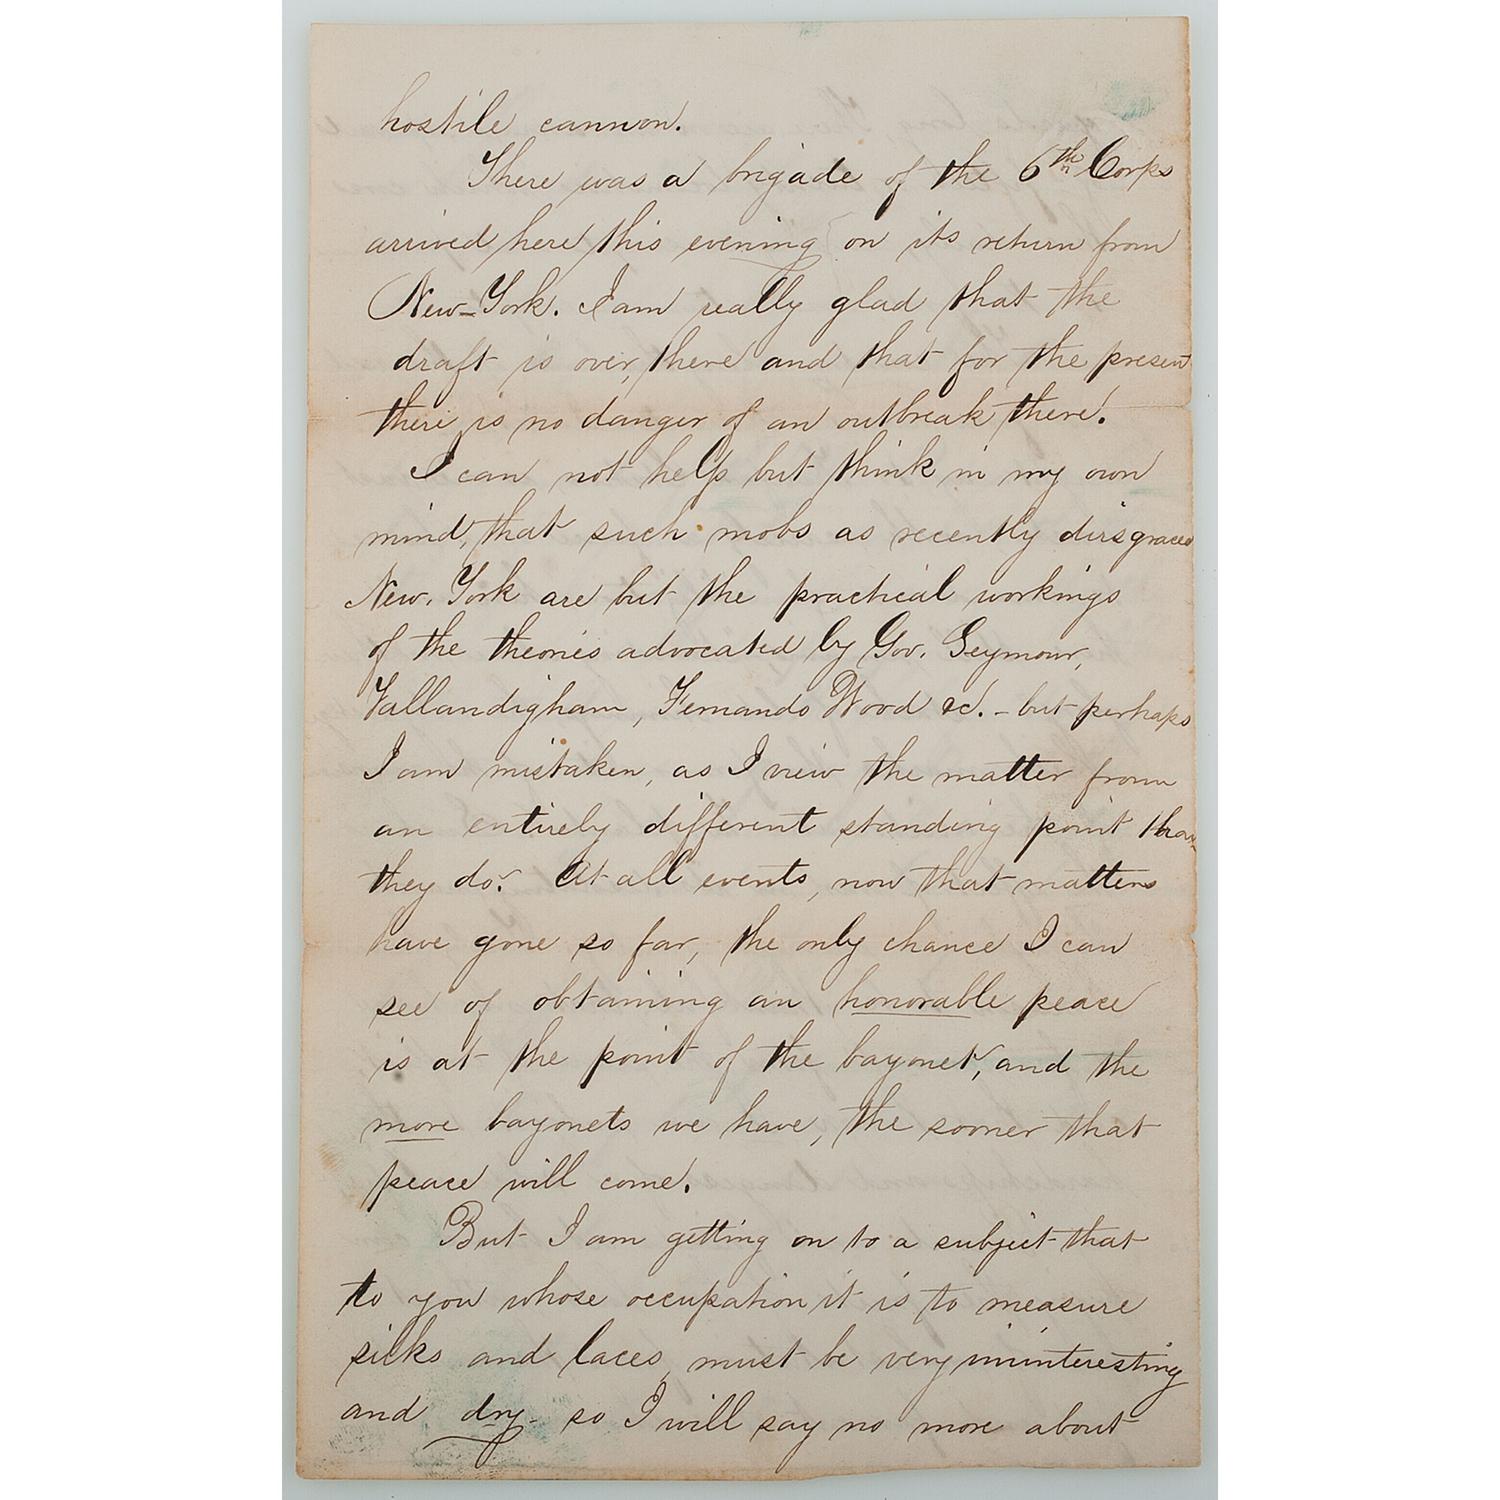 hostile cannon.
There was a brigade of the 6th Corps
arrived here this evening on its return from
New-York. I am really glad that the
draft is over, there and that for the present
there is no danger of an outbreak there!
I can not help but think in my own
mind, that such mobs as recently disgraced
New-York are but the practical workings
of the theories advocated by Gov. Seymour,
Vallandigham, Fernando Wood &c. - but perhaps
I am mistaken, as I view the matter from
an entirely different standing point than
they do. At all events, now that matters
have gone so far, the only chance I can
see of obtaining an honorable peace
is at the point of the bayonet, and the
more bayonets we have, the sooner that
peace will come.
But I am getting on to a subject that
to you whose occupation it is to measure
silks and laces, must be very uninteresting
and dry - so I will say no more about